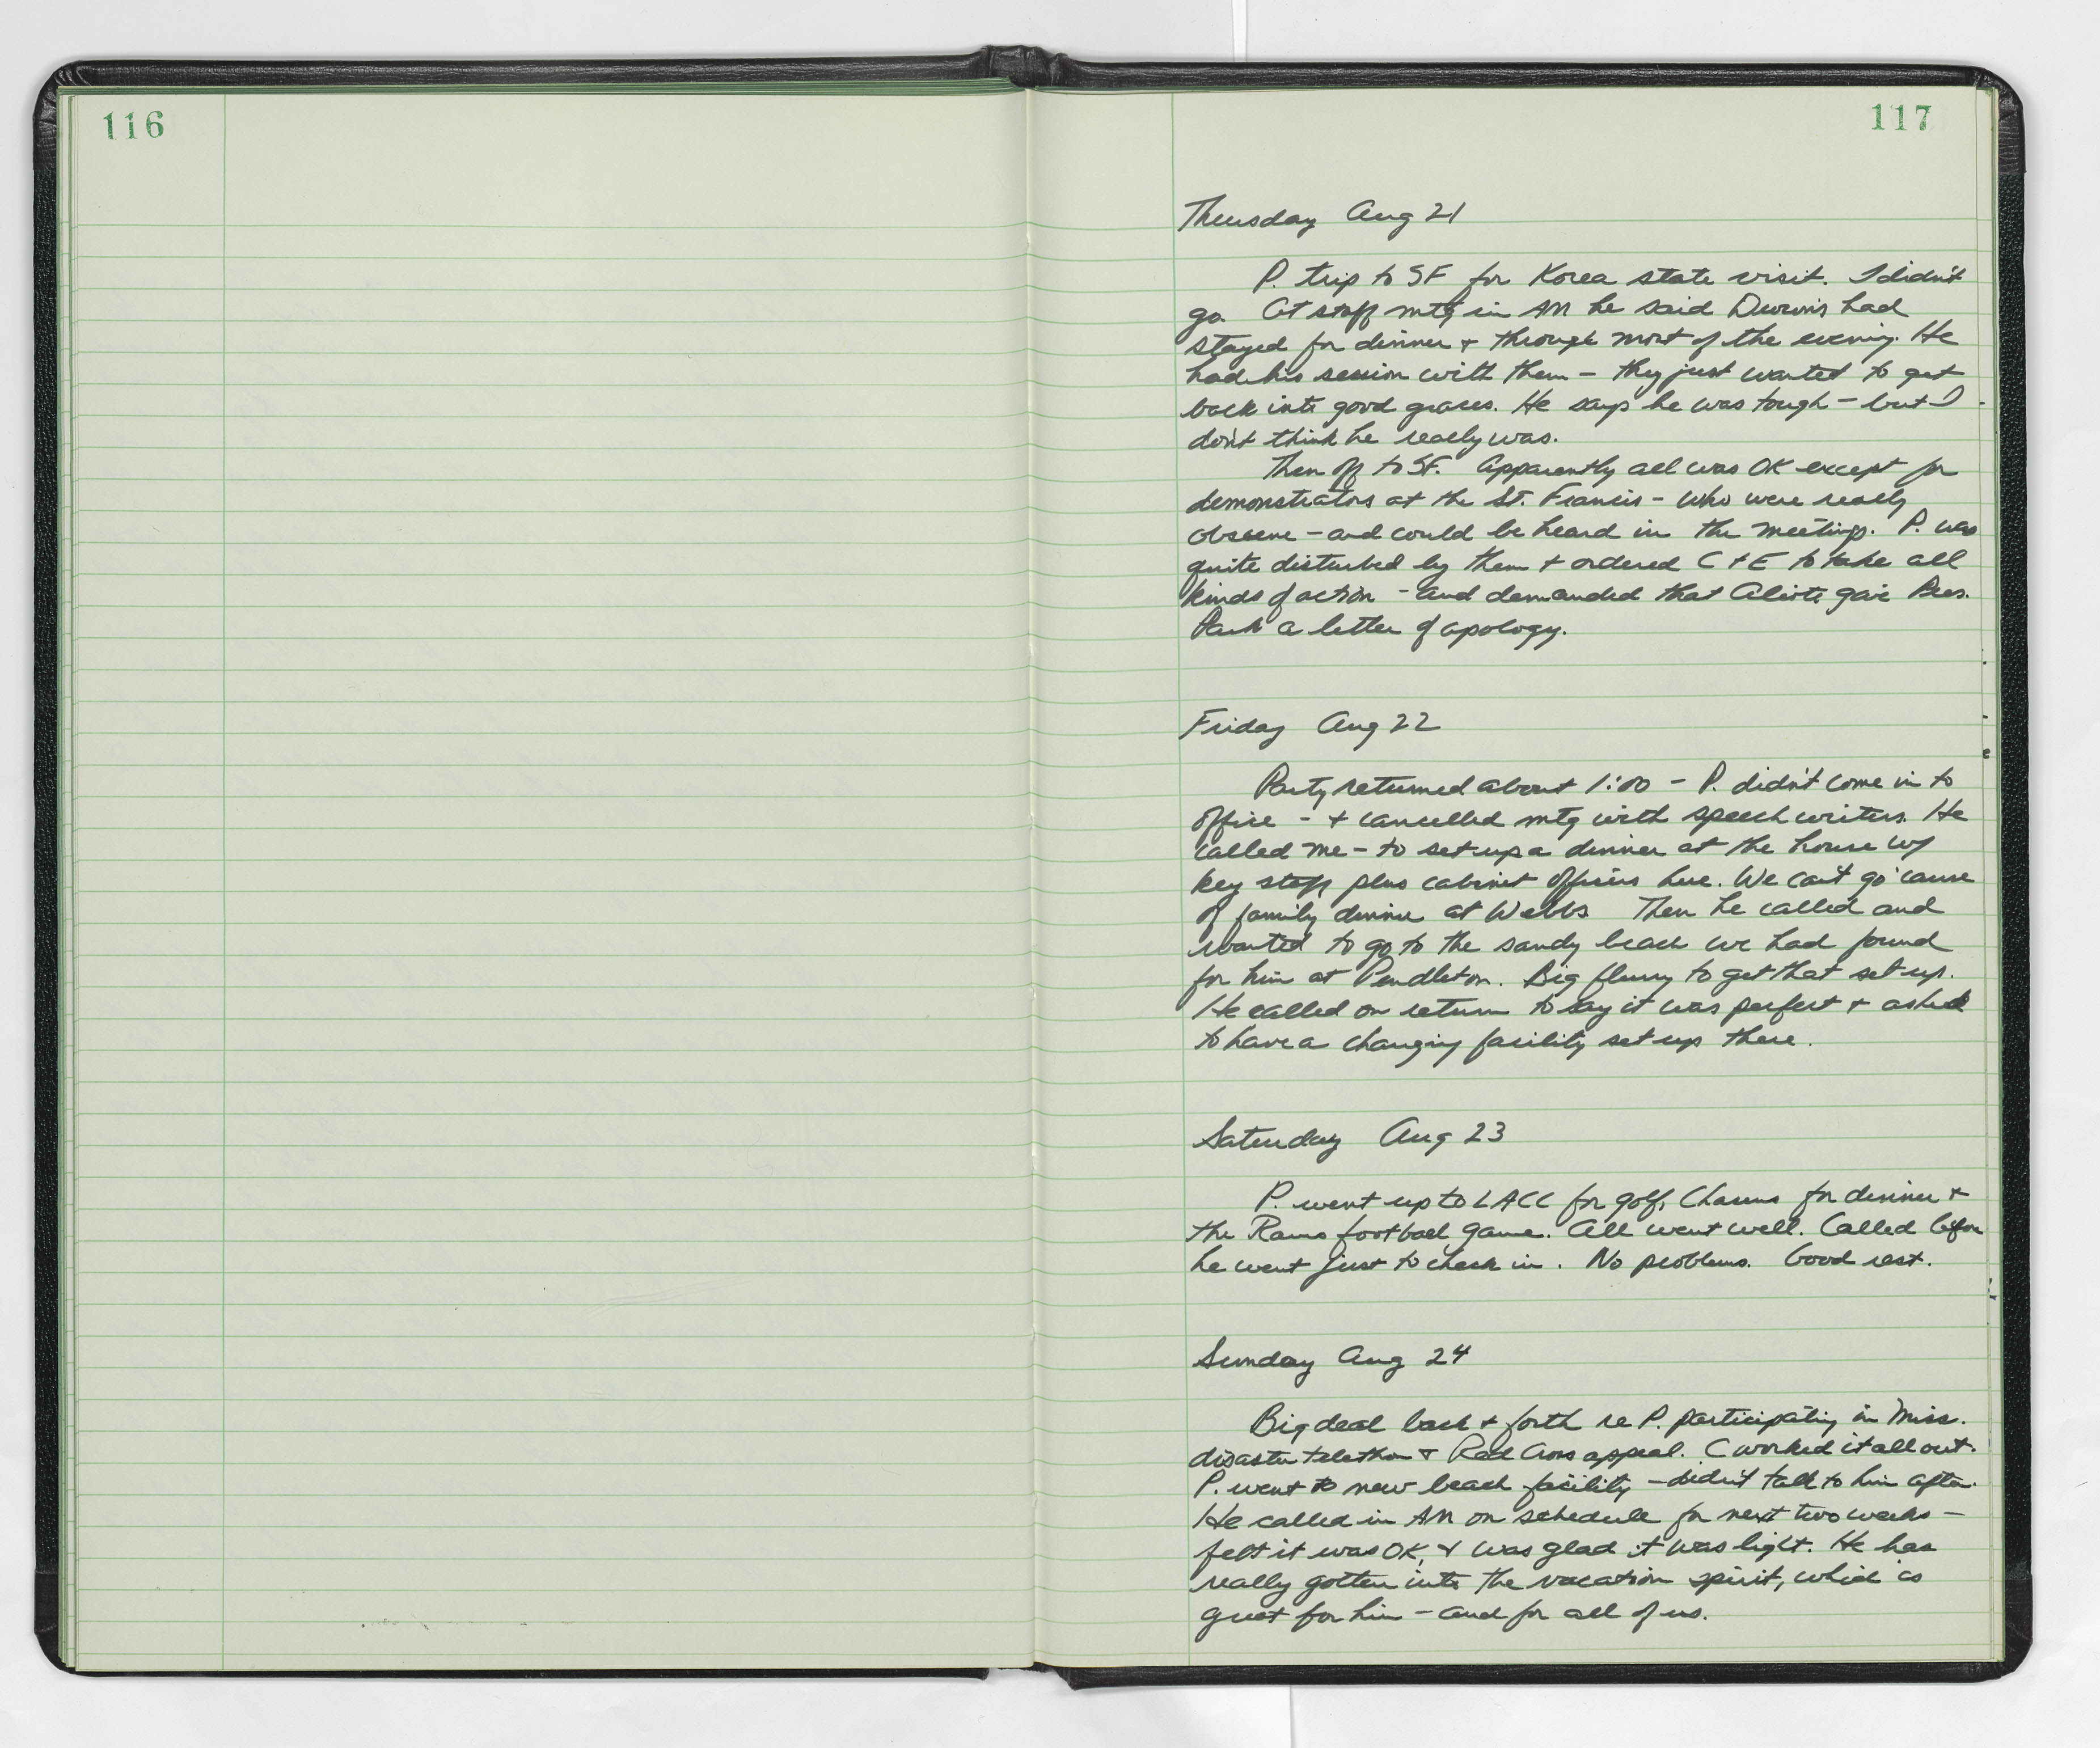 116
117
Thursday Aug 21
P. trip to SF for Korea state visit. I didn't
go. At staff mtg in AM he said Drowns had
stayed for dinner + through most of the evening. He
had his session with them - they just wanted to get
back into good graces. He says he was tough - but I
don't think he really was.
Then off to SF. Apparently all was OK except for
demonstrators at the St. Francis - who were really
obscene - and could be heard in the meetings. P. was
quite disturbed by them + ordered C + E to take all
kinds of action - and demanded that Alioto give Pres.
Park a letter of apology.
Friday Aug 22
Party returned about 1:00 - P. didn't come in to
office - + cancelled mtg with speech writers. He
called me - to set up a dinner at the house w/
key staff plus cabinet officers here. We can't go 'cause
of family dinner at Webbs. Then he called and
wanted to go to the sandy beach we had found
for him at Pendleton. Big flurry to get that set up.
He called on return to say it was perfect + asked
to have a changing facility set up there.
Saturday Aug 23
P. went up to LACC for golf, Chasens for dinner +
the Rams football game. All went well. Called before
he went just to check in. No problems. Good rest.
Sunday Aug 24
Big deal back + forth re P. participating in Miss.
disaster telethon + Red Cross appeal. C worked it all out.
P. went to new beach facility - didn't talk to him after.
He called in AM on schedule for next two weeks -
felt it was OK, + was glad it was light. He has
really gotten into the vacation spirit, which is
great for him - and for all of us.